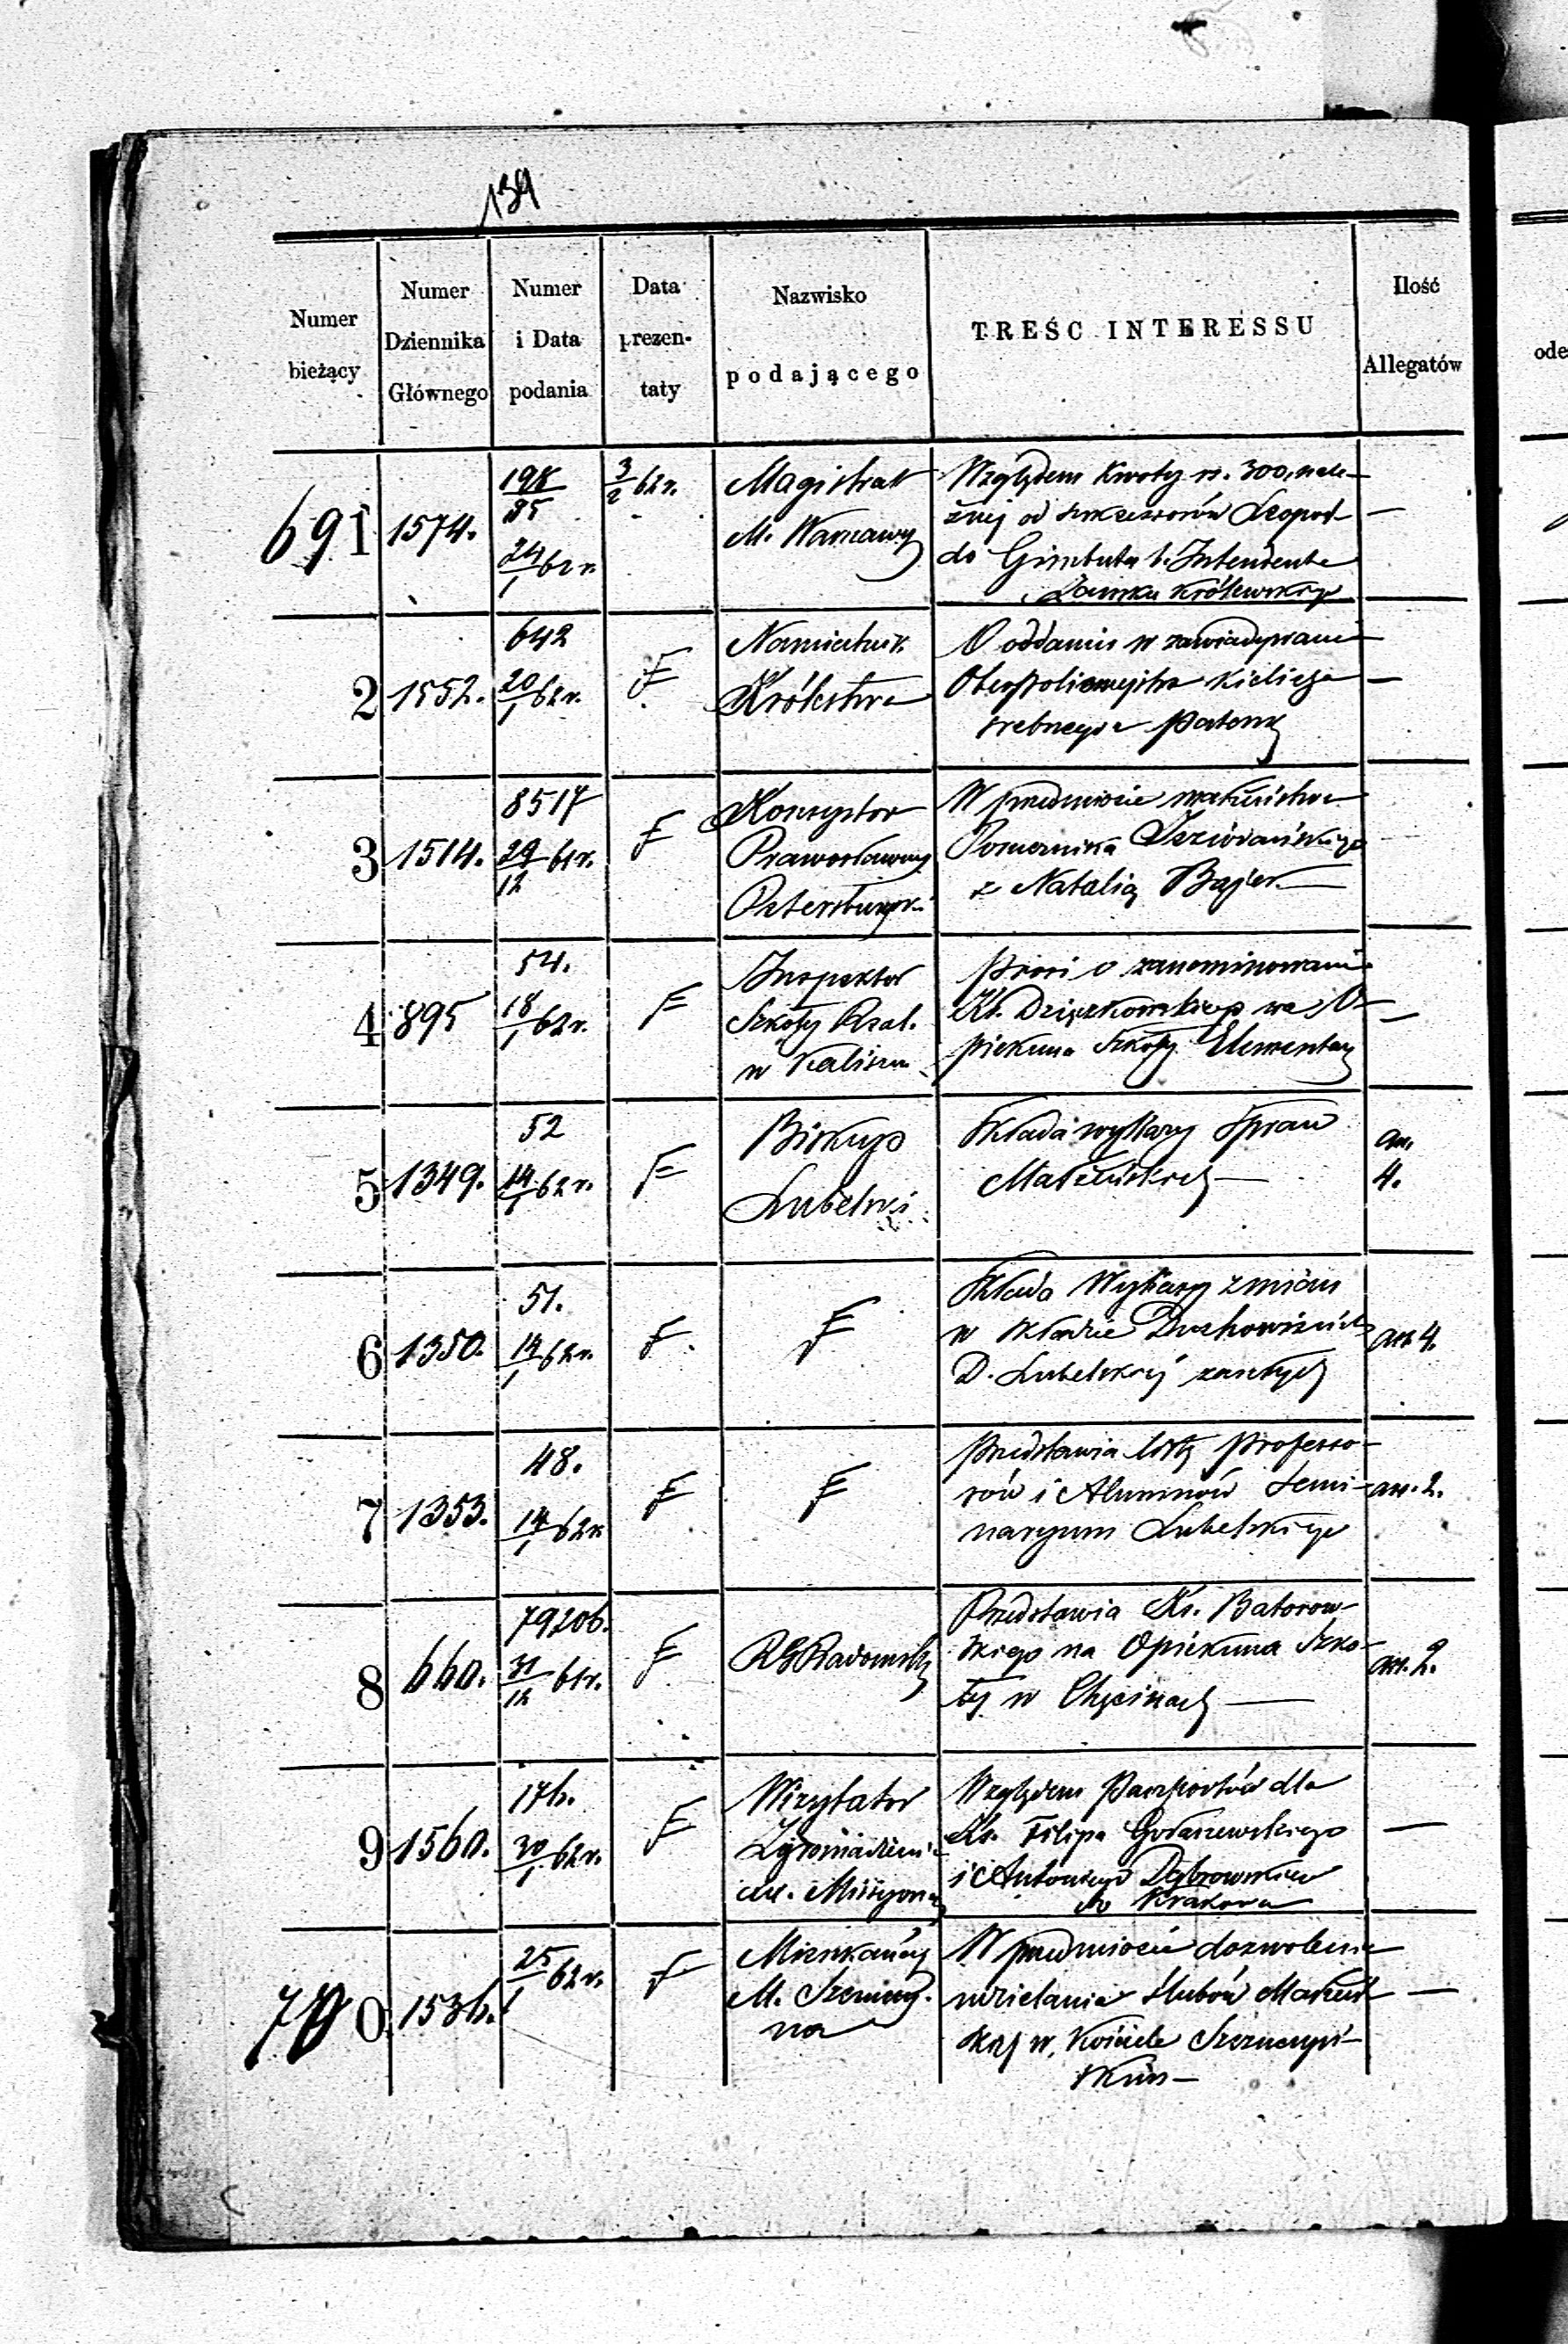 134
Numer bieżący
Numer Dziennika Głównego
Numer i Data podania
Data prezentaty
Nazwisko podającego
TREŚC INTERESSU
Ilość Allegatów
ode
691
1574.
24/1 62 r.
3/2 62 r.
Magistrat
M. Warszawy
Względem Kwoty rs. 300, nale-
żnej od sukcessorów Leopol-
da Gimbuta b. Intendenta
Zamku Królewskiego
—
2
1552.
642
20/1 62 r.
F
Namiestnik
Królestwa
O oddaniu w zawiadywanie
Oberpolicmejstra Kielicha
srebrnego i Pateny
—
3
1514.
8517
29/12 61 r.
F
Konsystor
Prawosławny
Petersburski
W przedmiocie małżeństwa
Porucznika
z Natalią Bajer —
4
895
54.
18/1 62 r.
F
Inspektor
Szkoły Real.
w Kaliszu
Prosi o zanominowanie
Ks. Dziążkowskiego na O-
piekuna Szkoły Elementar
—
5
1349.
52
14/1 62 r.
F
Biskup
Lubelski
Składa wykazy Spraw
Małżeńskich —
an.
4.
6
1350.
51.
14/1 62 r.
F
F
Składa Wykazy zmian
w składzie Duchowieństwa
D. Lubelskiej zaszłych
an. 4.
7
1353.
48.
14/1 62 r.
F
F
Przedstawia listę Professo-
rów i Alumnów Semi-
naryum Lubelskiego
an. 2.
8
660.
79206.
31/12 61 r.
F
RG Radomski
Przedstawia Ks. Batorow-
skiego na Opiekuna Szko-
ły w Chęcinach —
an. 2.
9
1560.
176.
30/1 62 r.
F
Wizytator
Zgromadzeni-
XX. Missyonarzy
Względem Paszportów dla
Ks. Filipa Gołaszewskiego
i Antoniego Dąbrowskiego
do Krakowa
—
700
1536.
25/1 62 r.
F
Mieszkańcy
M.
na
W przedmiocie dozwolenia
udzielania Ślubów Małżeń-
skich w Kościele
skim —
—